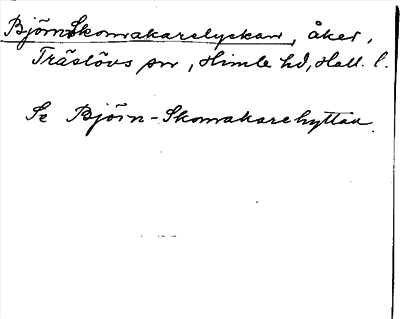 BjörnSkomakarelyckan, åker,
Träslövs sn, Himle hd, Hall. l.
Se Björn-Skomakarehyttan.